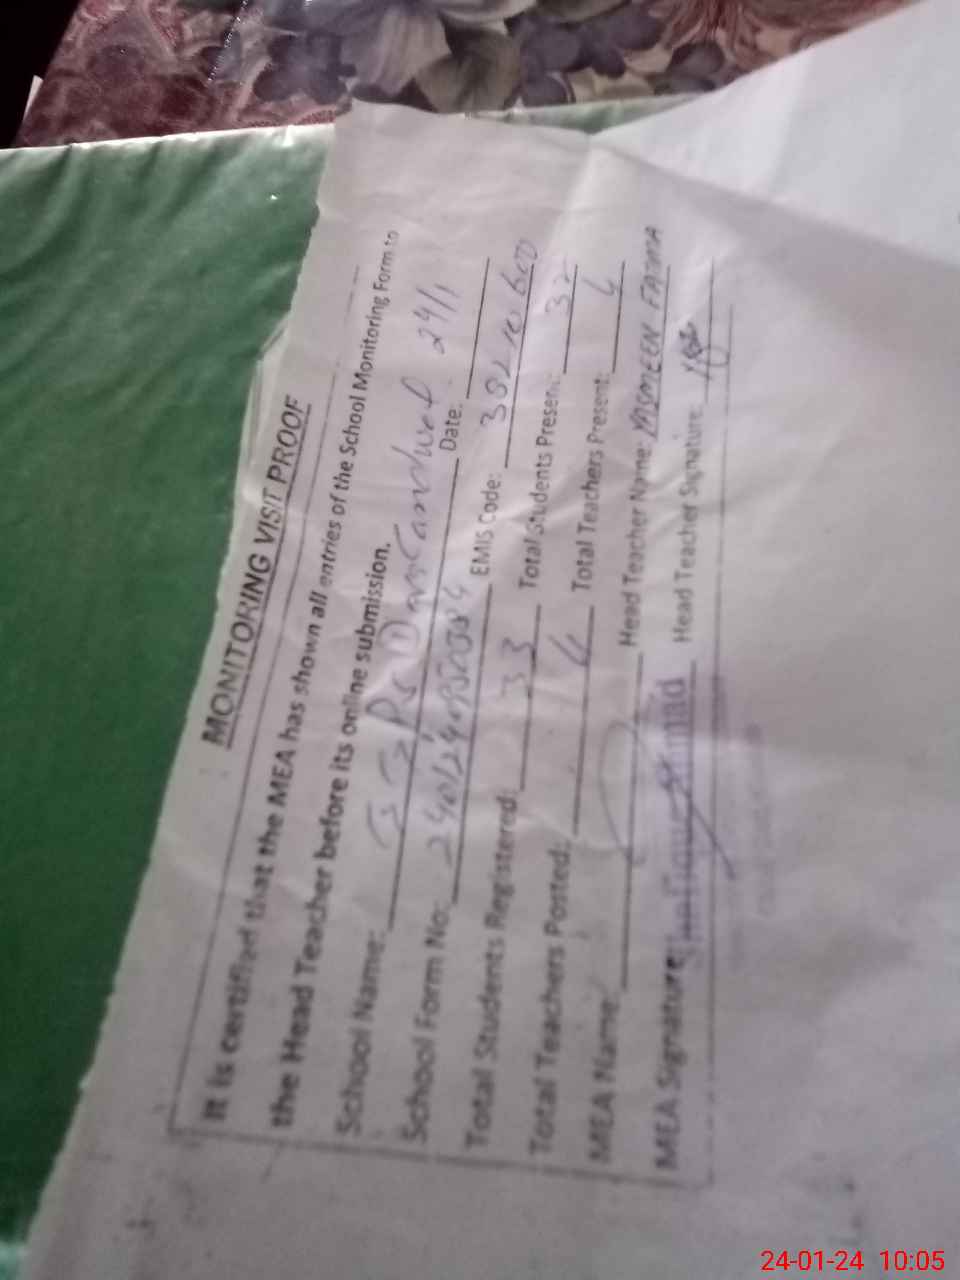 MONITORING VISIT PROOF
It is certified that the MEA has shown all entries of the School Monitoring Form to
the Head Teacher before its online submission.
School Name: Date: 24/1
School Form No: EMIS Code:
Total Students Registered: 33 Total Students Present: 32
Total Teachers Posted: 4 Total Teachers Present: 4
MEA Name: Head Teacher Name: YASMEEN FATIMA
MEA Signature: Head Teacher Signature:
24-01-24 10:05